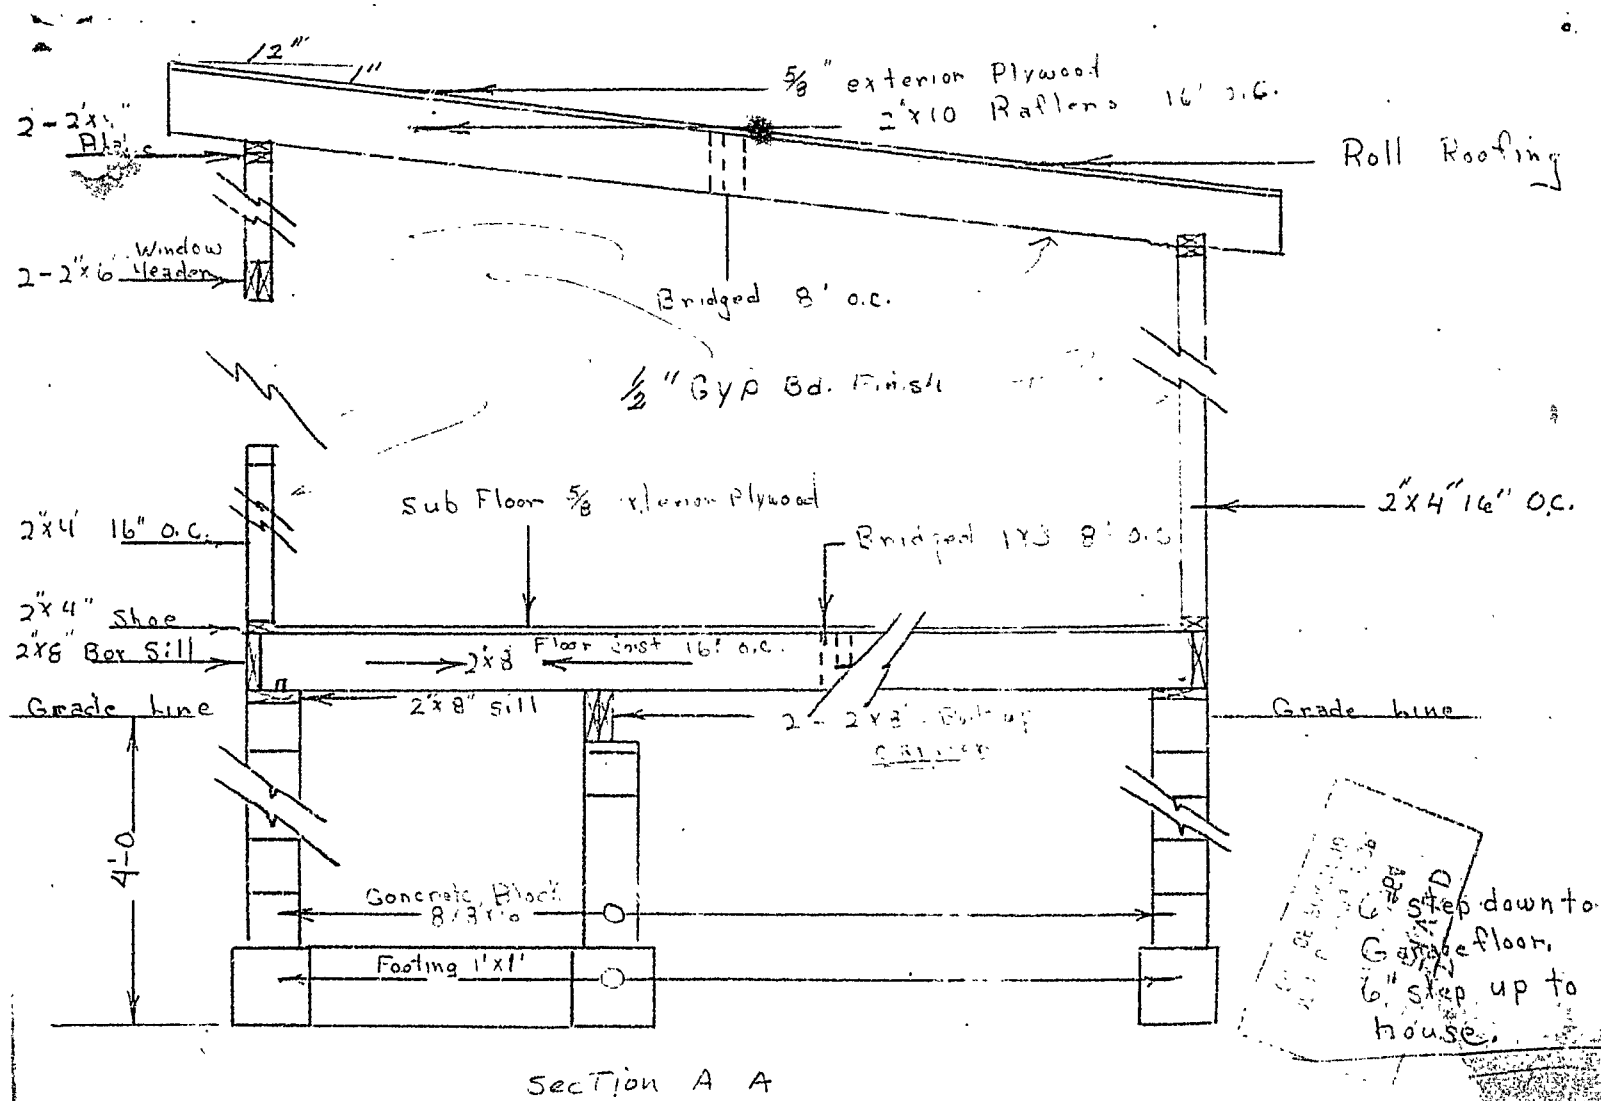 12"
1"
5/8" exterior Plywood
2"x10 Rafters 16' o.c.
2-2'x4"
Roll Roofing
Window
2-2"x6" Header
Bridged 8' o.c.
1/2" Gyp Bd. Finish
Sub Floor 5/8 exterior Plywood
2"x4" 16" O.C.
2"x4' 16" O.C.
Bridged 1x3 8' o.c
2"x4" Shoe
2"x8" Box Sill
Floor Joist 16' o.c.
2"x8"
2"x8" Sill
Grade Line
2 - 2x8" Built up
Grade Line
4'-0
Concrete Block
Footing 1'x1'
6" step down to
Garage floor.
6" step up to
house.
Section A A